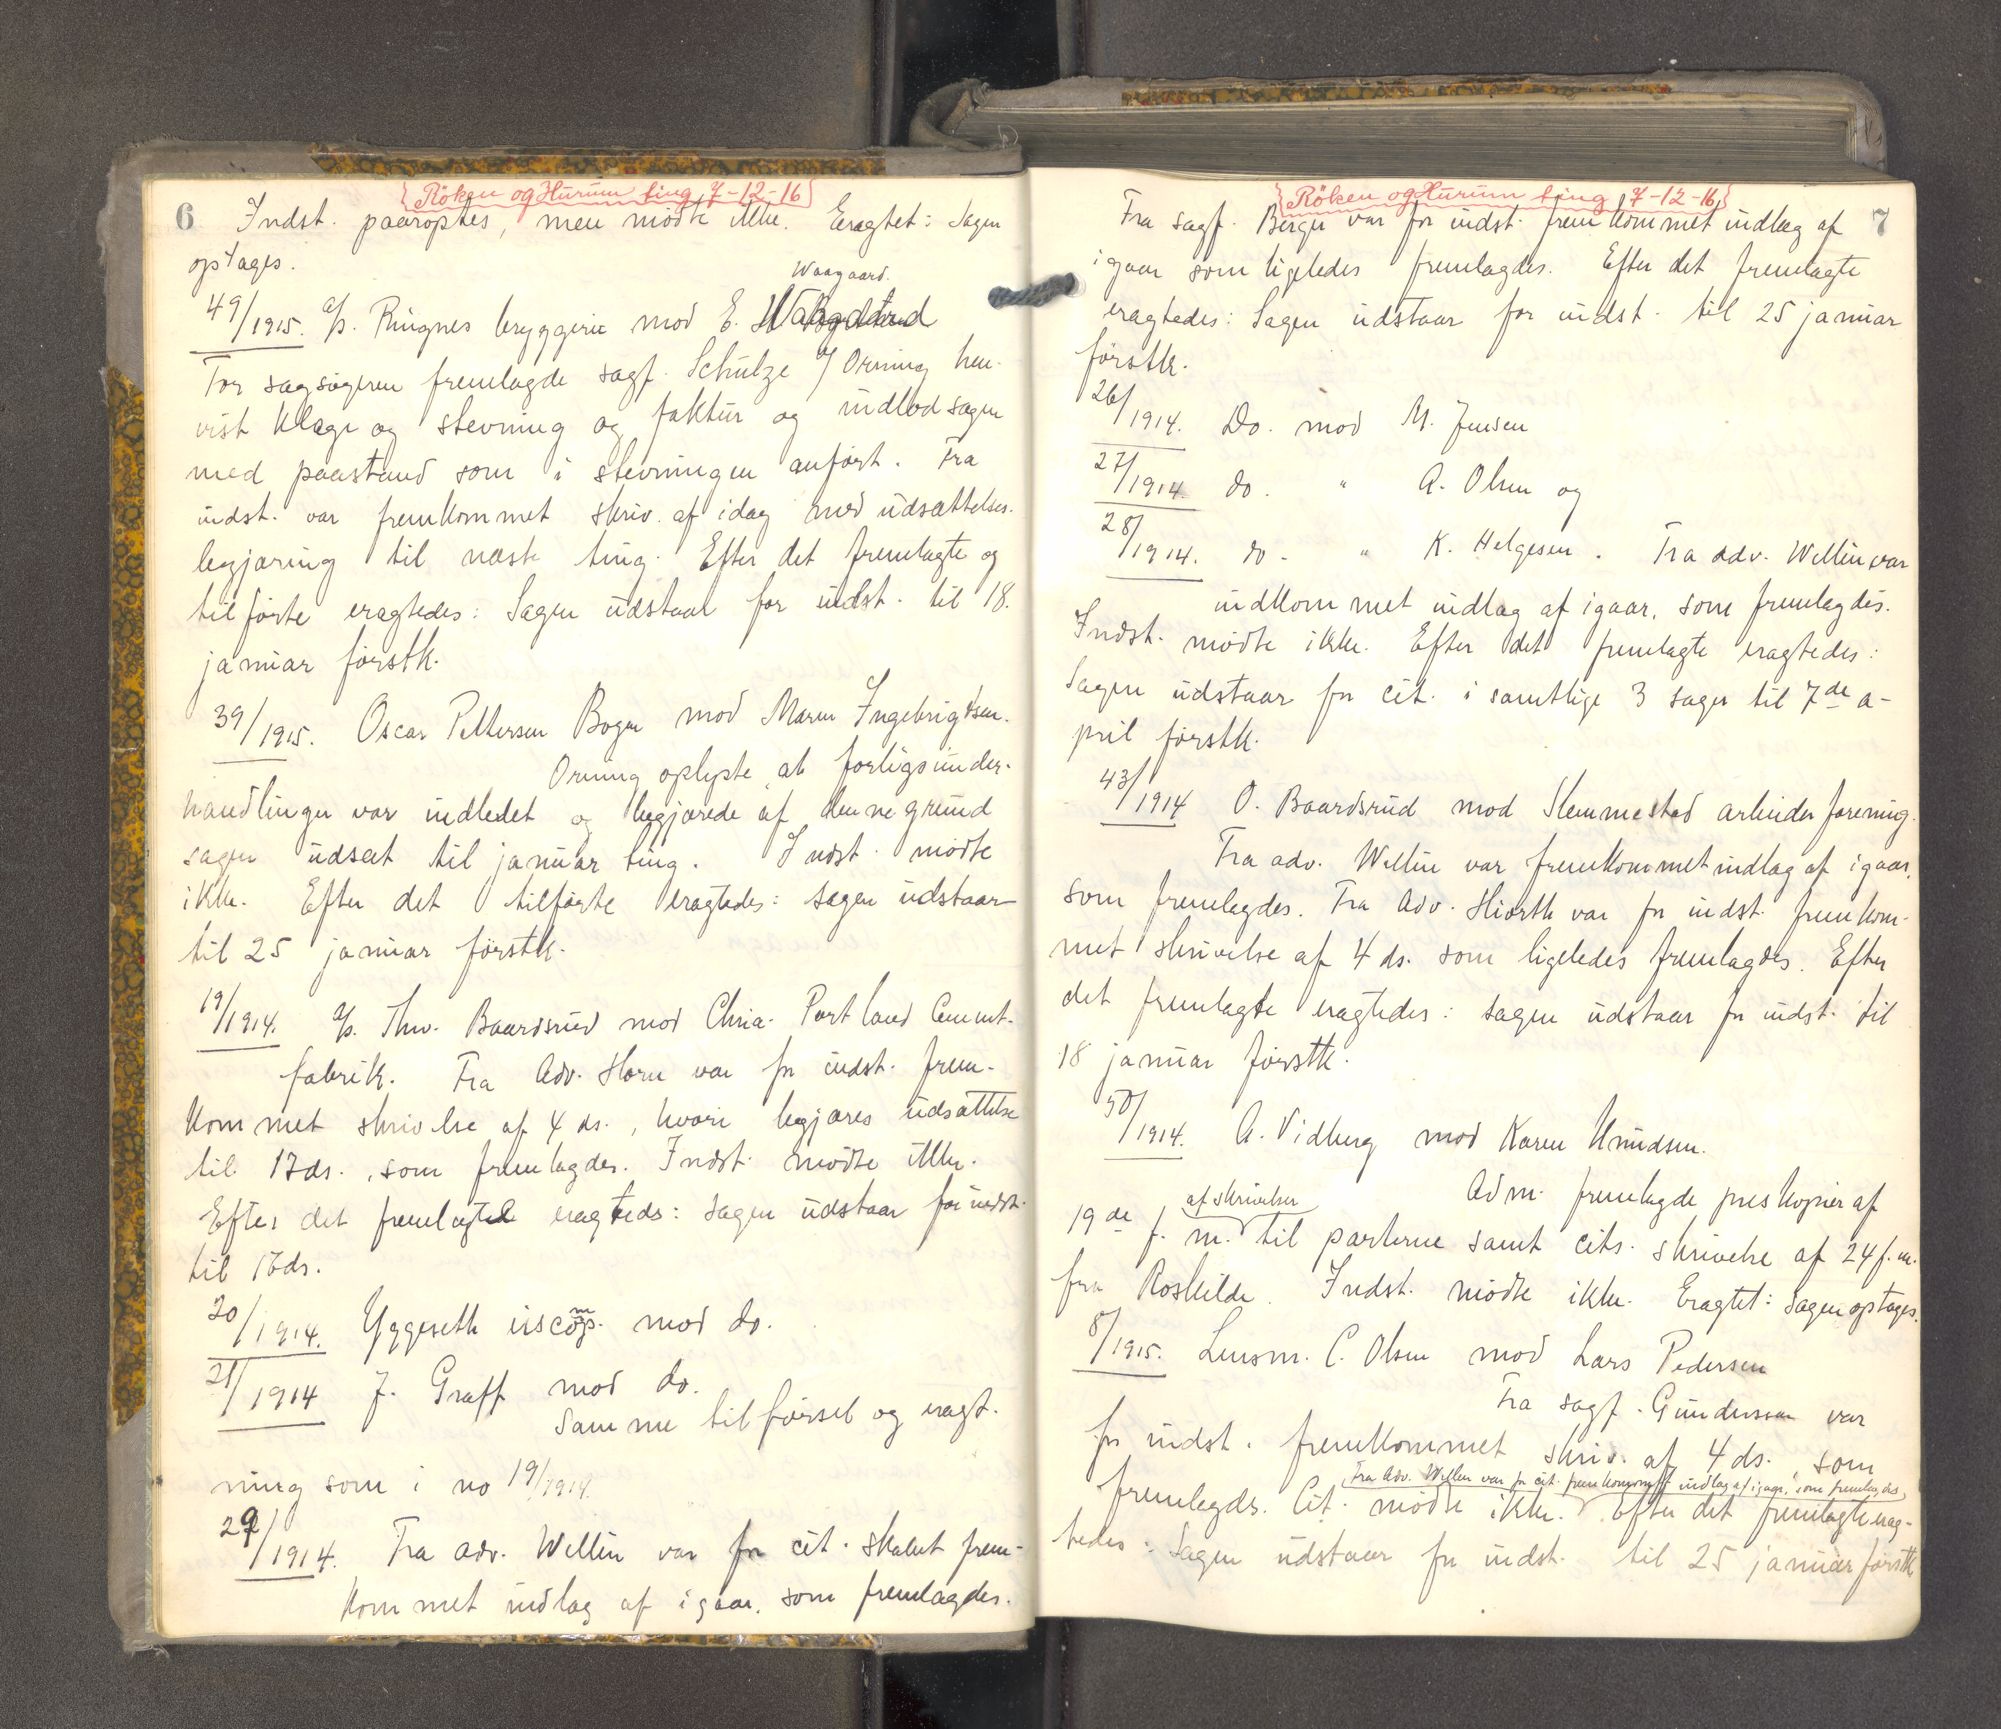 {Röken og Hurum ting 7-12-16}
6 Indst. paaroptes, men mödte ikke. Eragtet: Sagen
optages.
Waagaard.
49/1915. A/s. Ringnes bryggerie mod E.
For sagsögeren fremlagde sagf. Schulze v/ Orning hen-
vist klage og stevning og faktur og indlod sagen
med paastand som i stevningen anfört. Fra
indst. var fremkommet skriv. af idag med udsættelses-
begjæring til næste ting. Efter det fremlagte og
tilförte eragtedes: Sagen udstaar for indst. til 18.
januar förstk.
39/1915. Oscar Pettersen Bogen mod Maren Ingebrigtsen.
Orning oplyste, at forligsunder-
handlinger var indledet og begjærede af denne grund
sagen udsat til januar ting. Indst. mödte
ikke. Efter det tilförte eragtedes: sagen udstaar
til 25 januar förstk.
19/1914. A/s. Thv. Baardsrud mod Chria. Portland Cement-
fabrik. Fra Adv. Horn var for indst. frem-
kommet skrivelse af 4 ds., hvori begjæres udsættelse
til 17ds., som fremlagdes. Indst. mödte ikke.
Efter det fremlagte eragteds: Sagen udstaar for indst.
til 17ds.
20/1914. Yggeseth iiscomp. mod do.
21/1914 J. Graff mod do.
Samme tilförsel og eragt-
ning som i no 19/1914.
29/1914. Fra adv. Wellin var for cit. skabet frem-
kommet indlæg af igaar, som fremlagdes.
{Röken og Hurum ting 7-12-16}
7
Fra sagf. Berger var for indst. fremkommet indlæg af
igaar som ligeledes fremlagdes. Efter det fremlagte
eragtedes: Sagen udstaar for indst. til 25 januar
förstk.
26/1914. Do. mod M. Jensen
27/1914. do. " A. Olsen og
28/1914. do. " K. Helgesen. Fra adv. Wellin var
indkommet indlæg af igaar, som fremlagdes.
Indst. mödte ikke. Efter det fremlagte eragtedes:
Sagen udstaar for cit. i samtlige 3 sager til 7de a-
pril förstk.
43/1914 O. Baardsrud mod Slemmestad arbeiderforening.
Fra adv. Wellin var fremkommet indlæg af igaar,
som fremlagdes. Fra Adv. Hiorth var for indst. fremkom-
met skrivelse af 4 ds. som ligeledes fremlagdes. Efter
det fremlagte eragtedes: sagen udstaar for indst. til
18 januar förstk.
50/1914. A. Vidberg mod Karen Knudsen.
Adm. fremlagde preskopier af
af skrivelser
19de f. m. til parterne samt cits. skrivelse af 24 f.m.
fra Roskilde. Indst. mödte ikke. Eragtet: Sagen optages.
8/1915. Lensm. C. Olsen mod Lars Pedersen
Fra sagf. Gundersen var
for indst. fremkommet skriv. af 4 ds. som
Fra Adv. Wellin var for cit. fremkommet indlæg af igaar, som fremlagdes,
fremlagdes. Cit. mödte ikke. Efter det fremlagte erag-
tedes: Sagen udstaar for indst. til 25 januar förstk